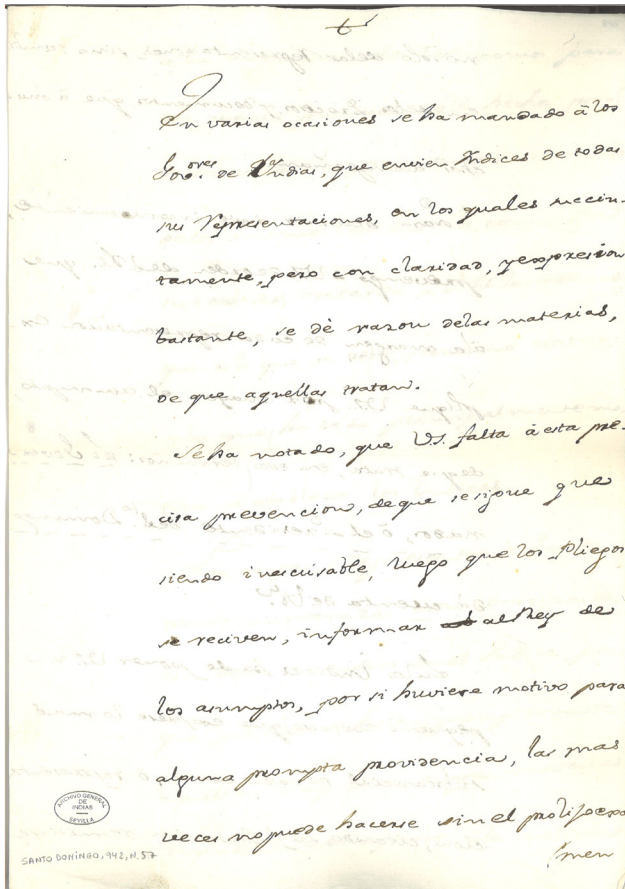 En varias ocasiones se ha mandado â los
Gov.ores de Indias, que envien Indices de todas
sus representaciones, en los quales succin-
tamente, pero con claridad, y expresion
bastante, se dè razon delas materias,
de que aquellas tratan.
Se ha notado, que VS. falta â esta pre-
cisa prevencion, de que se sigue que
siendo inescusable, luego que los Pliegos
se reciven, informar al Rey de
los asumptos, por si huviere motivo para
alguna prompta providencia, las mas
veces no puede hacerse sin el prolijo exa
men
ARCHIVO GENERAL
DE
INDIAS
SEVILLA
SANTO DOMINGO, 942, N.57